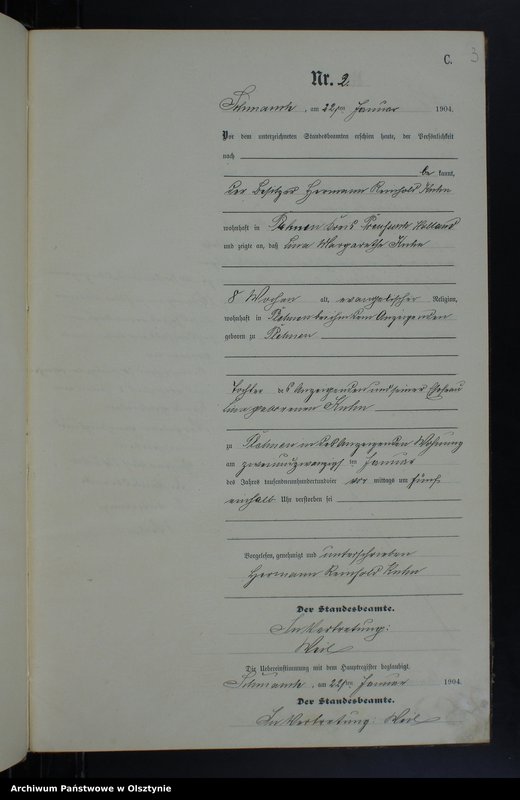 C.
3
Nr. 2.
Schmauch, am 22ten Januar 1904.
Vor dem unterzeichneten Standesbeamten erschien heute, der Persönlichkeit
nach
be kannt,
der Besitzer Hermann Reinhold
wohnhaft in Kreis Preußisch Holland
und zeigte an, daß Margarethe
8 Wochen alt, evangelischer Religion,
wohnhaft in bei dem Anzeigenden
geboren zu
Tochter des Anzeigenden und seiner Ehefrau
geborenen
zu in des Anzeigenden Wohnung
am zweiundzwanzigsten Januar
des Jahres tausendneunhundertundvier vor mittags um fünf
einhalb Uhr verstorben sei
Vorgelesen, genehmigt und unterschrieben
Hermann Reinhold
Der Standesbeamte.
In Vertretung:
Weil
Die Uebereinstimmung mit dem Hauptregister beglaubigt.
Schmauch, am 22ten Januar 1904.
Der Standesbeamte.
In Vertretung: Weil
Archiwum Państwowe w Olsztynie